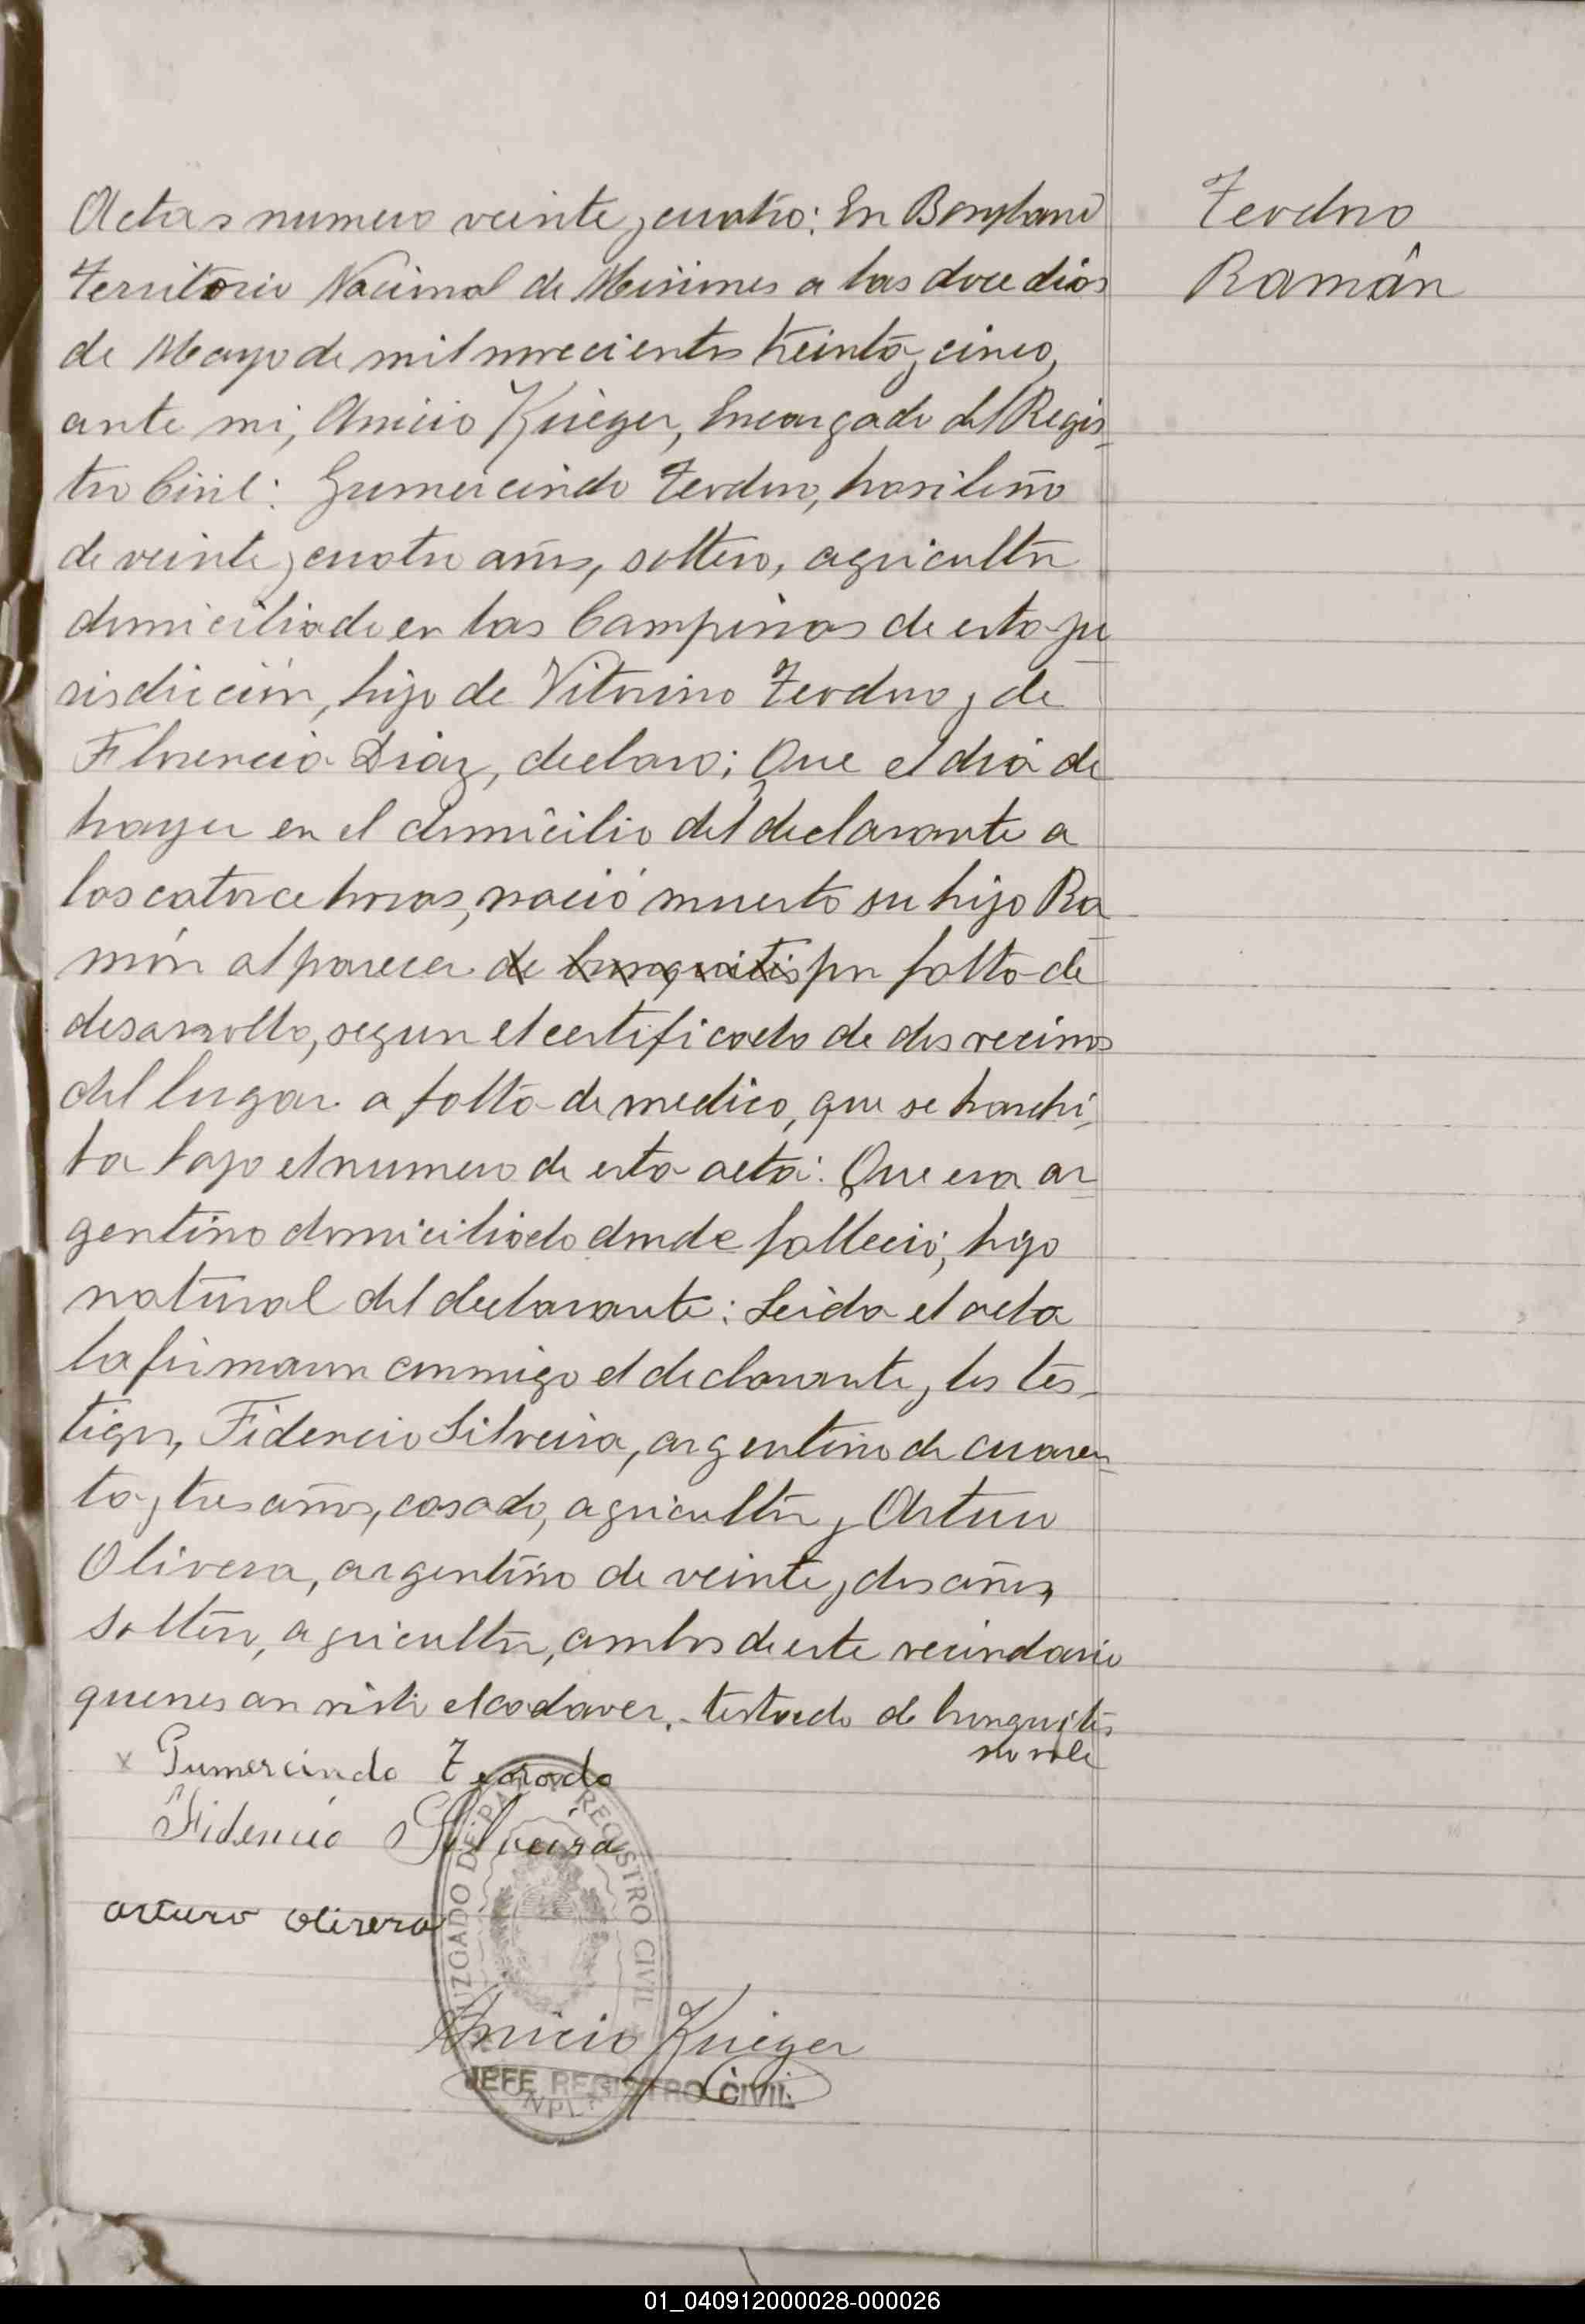 Actas numero veinte y cuatro: En Bonpland
Territorio Nacional de Misiones a las doce dias
de Mayo de mil novecientos treinta y cinco,
ante mi, Anicio Krieger, Encargado del Regis-
tro Civil: Gumercindo Terdno, brasileño
de veinte y cuatro años, soltero, agricultor
domiciliado en las Campinas de esta ju
risdicción, hijo de Vitorino Terdno y de
Florencia Diaz, declaro; Que el dia de
hayer en el domicilio del declarante a
las catorce horas, nació muerto su hijo Ra
món al parecer de bronquitis por falta de
desarrollo, segun el certificado de dos vecinos
del lugar a falta de medico, que se harchi-
ba bajo el numero de esta acta: Que era ar
gentino domiciliado donde fallecio, hijo
natural del declarante: Leida el acta
la firmaron conmigo el declarante y los tes-
tigos, Fidencio Silveira, argentino de cuaren-
ta y tres años, casado, agricultor y Arturo
Olivera, argentino de veinte y dos años,
soltero, agricultor, ambos de este vecindario
quenes an visto el cadaver. - testado de bronquitis
no vale
x Gumercindo
Fidencio Silveira
arturo olivera
Anicio Krieger
JUZGADO DE PAZ Y REGISTRO CIVIL
JEFE REGISTRO CIVIL
Terdno
Ramón
01_040912000028-000026